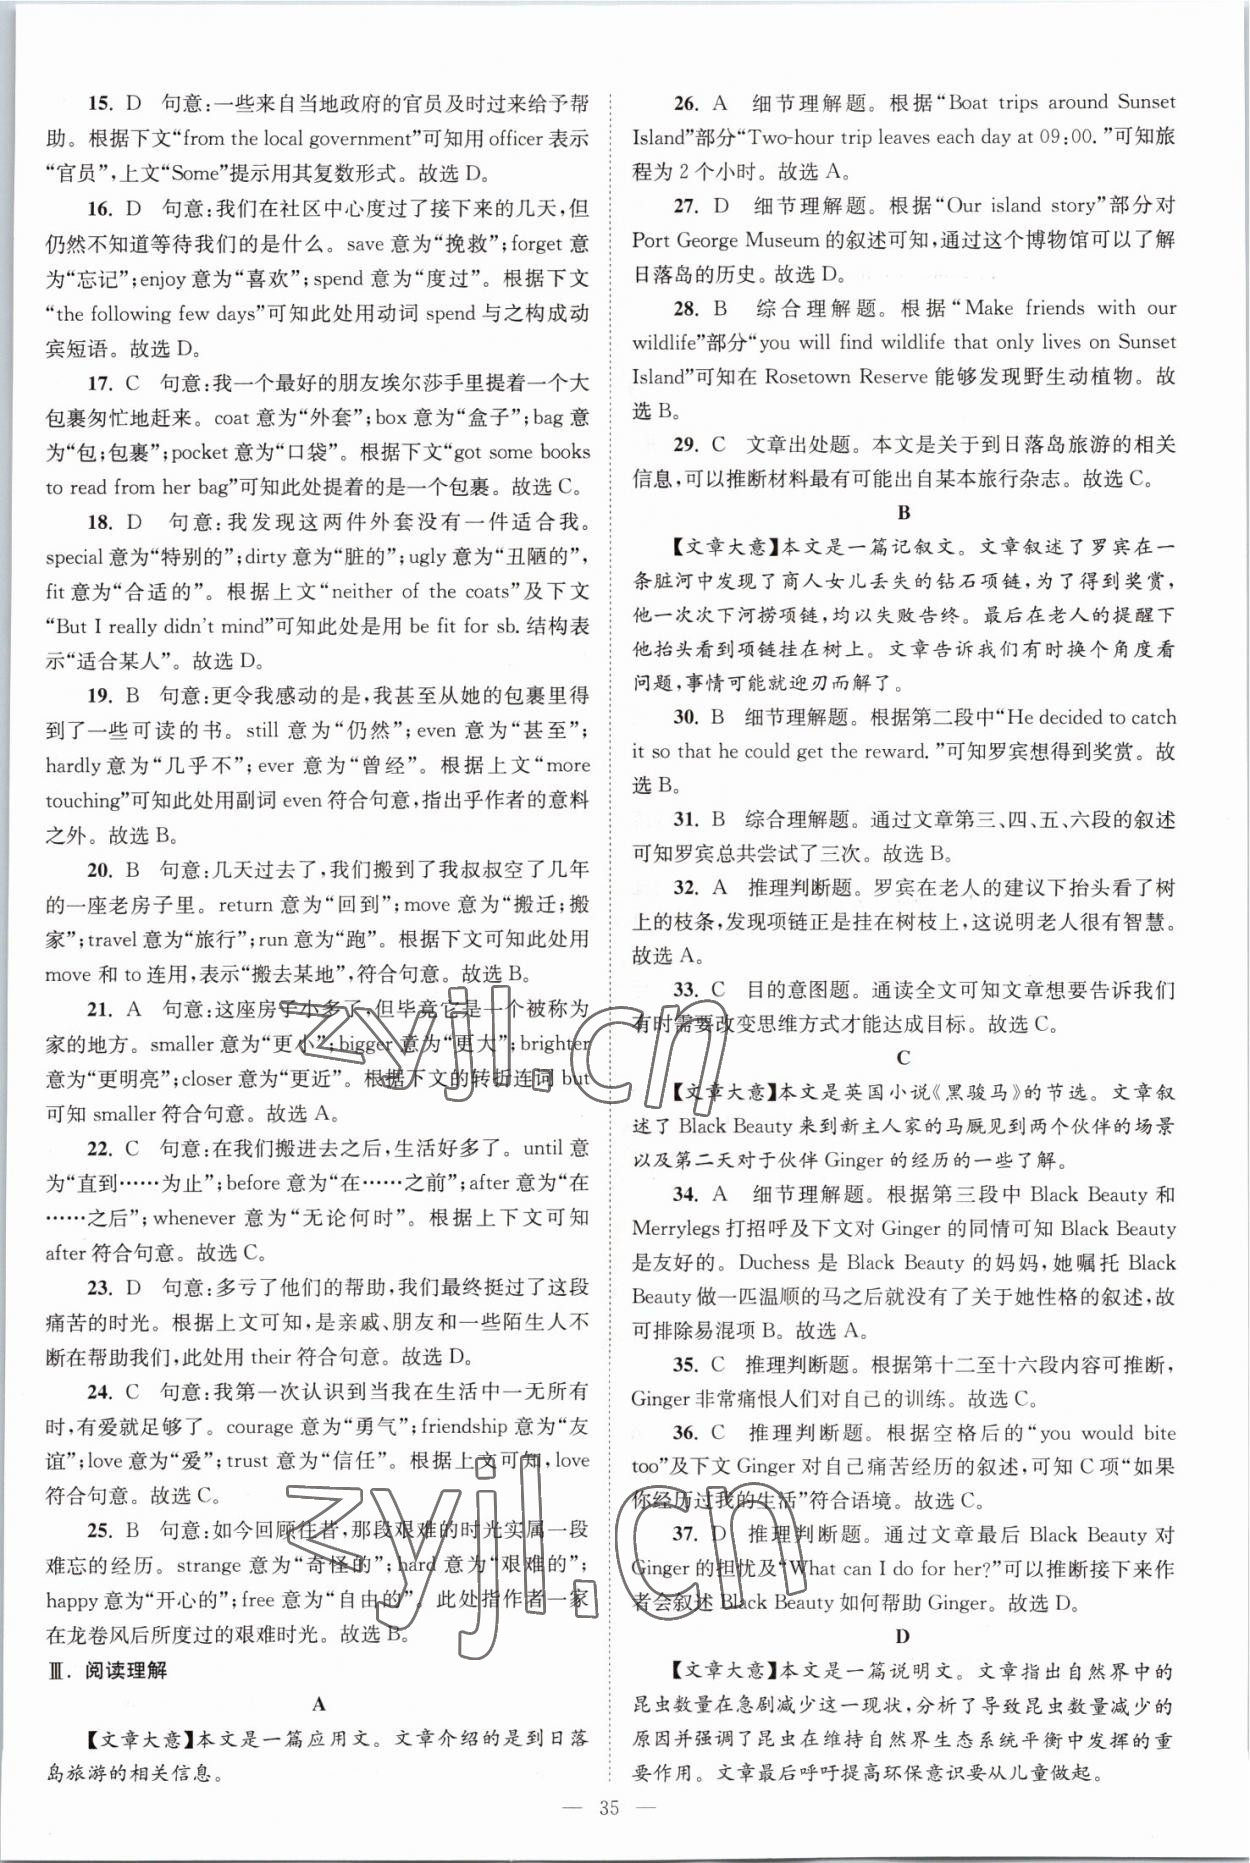 15. D 句意:一些来自当地政府的官员及时过来给予帮
助。根据下文“from the local government”可知用 officer 表示
“官员”,上文“Some”提示用其复数形式。故选 D。
16. D 句意:我们在社区中心度过了接下来的几天,但
仍然不知道等待我们的是什么。save 意为“挽救”;forget 意
为“忘记”;enjoy 意为“喜欢”;spend 意为“度过”。根据下文
“the following few days”可知此处用动词 spend 与之构成动
宾短语。故选 D。
17. C 句意:我一个最好的朋友埃尔莎手里提着一个大
包裹匆忙地赶来。coat 意为“外套”;box 意为“盒子”;bag 意
为“包;包裹”;pocket 意为“口袋”。根据下文“got some books
to read from her bag”可知此处提着的是一个包裹。故选 C。
18. D 句意:我发现这两件外套没有一件适合我。
special 意为“特别的”;dirty 意为“脏的”;ugly 意为“丑陋的”,
fit 意为“合适的”。根据上文“neither of the coats”及下文
“But I really didn't mind”可知此处是用 be fit for sb. 结构表
示“适合某人”。故选 D。
19. B 句意:更令我感动的是,我甚至从她的包裹里得
到了一些可读的书。still 意为“仍然”;even 意为“甚至”;
hardly 意为“几乎不”;ever 意为“曾经”。根据上文“more
touching”可知此处用副词 even 符合句意,指出乎作者的意料
之外。故选 B。
20. B 句意:几天过去了,我们搬到了我叔叔空了几年
的一座老房子里。return 意为“回到”;move 意为“搬迁;搬
家”;travel 意为“旅行”;run 意为“跑”。根据下文可知此处用
move 和 to 连用,表示“搬去某地”,符合句意。故选 B。
21. A 句意:这座房子小多了,但毕竟它是一个被称为
家的地方。smaller 意为“更小”;bigger 意为“更大”;brighter
意为“更明亮”;closer 意为“更近”。根据下文的转折连词 but
可知 smaller 符合句意。故选 A。
22. C 句意:在我们搬进去之后,生活好多了。until 意
为“直到……为止”;before 意为“在……之前”;after 意为“在
……之后”;whenever 意为“无论何时”。根据上下文可知
after 符合句意。故选 C。
23. D 句意:多亏了他们的帮助,我们最终挺过了这段
痛苦的时光。根据上文可知,是亲戚、朋友和一些陌生人不
断在帮助我们,此处用 their 符合句意。故选 D。
24. C 句意:我第一次认识到当我在生活中一无所有
时,有爱就足够了。courage 意为“勇气”;friendship 意为“友
谊”;love 意为“爱”;trust 意为“信任”。根据上文可知,love
符合句意。故选 C。
25. B 句意:如今回顾往昔,那段艰难的时光实属一段
难忘的经历。strange 意为“奇怪的”;hard 意为“艰难的”;
happy 意为“开心的”;free 意为“自由的”。此处指作者一家
在龙卷风后所度过的艰难时光。故选 B。
Ⅲ. 阅读理解
A
【文章大意】本文是一篇应用文。文章介绍的是到日落
岛旅游的相关信息。
26. A 细节理解题。根据“Boat trips around Sunset
Island”部分“Two-hour trip leaves each day at 09:00.”可知旅
程为 2 个小时。故选 A。
27. D 细节理解题。根据“Our island story”部分对
Port George Museum 的叙述可知,通过这个博物馆可以了解
日落岛的历史。故选 D。
28. B 综合理解题。根据“Make friends with our
wildlife”部分“you will find wildlife that only lives on Sunset
Island”可知在 Rosetown Reserve 能够发现野生动植物。故
选 B。
29. C 文章出处题。本文是关于到日落岛旅游的相关
信息,可以推断材料最有可能出自某本旅行杂志。故选 C。
B
【文章大意】本文是一篇记叙文。文章叙述了罗宾在一
条脏河中发现了商人女儿丢失的钻石项链,为了得到奖赏,
他一次次下河捞项链,均以失败告终。最后在老人的提醒下
他抬头看到项链挂在树上。文章告诉我们有时换个角度看
问题,事情可能就迎刃而解了。
30. B 细节理解题。根据第二段中“He decided to catch
it so that he could get the reward.”可知罗宾想得到奖赏。故
选 B。
31. B 综合理解题。通过文章第三、四、五、六段的叙述
可知罗宾总共尝试了三次。故选 B。
32. A 推理判断题。罗宾在老人的建议下抬头看了树
上的枝条,发现项链正是挂在树枝上,这说明老人很有智慧。
故选 A。
33. C 目的意图题。通读全文可知文章想要告诉我们
有时需要改变思维方式才能达成目标。故选 C。
C
【文章大意】本文是英国小说《黑骏马》的节选。文章叙
述了 Black Beauty 来到新主人家的马厩见到两个伙伴的场景
以及第二天对于伙伴 Ginger 的经历的一些了解。
34. A 细节理解题。根据第三段中 Black Beauty 和
Merrylegs 打招呼及下文对 Ginger 的同情可知 Black Beauty
是友好的。Duchess 是 Black Beauty 的妈妈,她嘱托 Black
Beauty 做一匹温顺的马之后就没有了关于她性格的叙述,故
可排除易混项 B。故选 A。
35. C 推理判断题。根据第十二至十六段内容可推断,
Ginger 非常痛恨人们对自己的训练。故选 C。
36. C 推理判断题。根据空格后的“you would bite
too”及下文 Ginger 对自己痛苦经历的叙述,可知 C 项“如果
你经历过我的生活”符合语境。故选 C。
37. D 推理判断题。通过文章最后 Black Beauty 对
Ginger 的担忧及“What can I do for her?”可以推断接下来作
者会叙述 Black Beauty 如何帮助 Ginger。故选 D。
D
【文章大意】本文是一篇说明文。文章指出自然界中的
昆虫数量在急剧减少这一现状,分析了导致昆虫数量减少的
原因并强调了昆虫在维持自然界生态系统平衡中发挥的重
要作用。文章最后呼吁提高环保意识要从儿童做起。
— 35 —
zyjl.cn
zyjl.cn